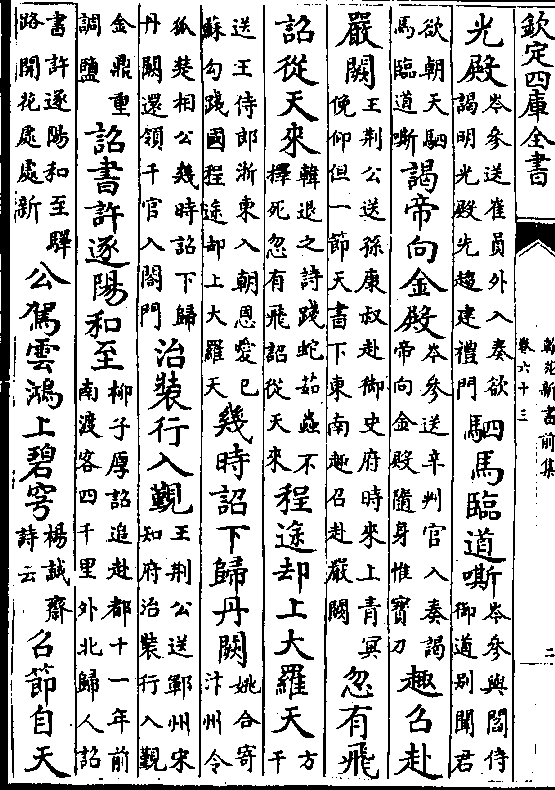 欽定四庫全書
翰苑新書前集
卷六十三
二
光殿岑參送崔員外入奏欲謁明光殿先趨建禮門駟馬臨道嘶岑參與閻侍御道別聞君
欲朝天駟馬臨道嘶謁帝向金殿岑參送辛判官入奏謁帝向金殿隨身惟寶刀趣召赴
嚴闕王荆公送孫康叔赴御史府時來上青冥俛仰但一節天書下東南趣召赴嚴闕忽有飛
詔從天來韓退之詩踐蛇茹蠱不擇死忽有飛詔從天來程途却上大羅天方干
送王侍郎浙東入朝恩愛已蘇勾踐國程途却上大羅天幾時詔下歸丹闕姚合寄汴州令
狐楚相公幾時詔下歸丹闕還領千官入閤門治裝行入覲王荆公送鄆州宋知府治裝行入覲
金鼎重調鹽詔書許逐陽和至柳子厚詔追赴都十一年前南渡客四千里外北歸人詔
書許逐陽和至驛路開花處處新公駕雲鴻上碧穹楊誠齋詩云召節自天